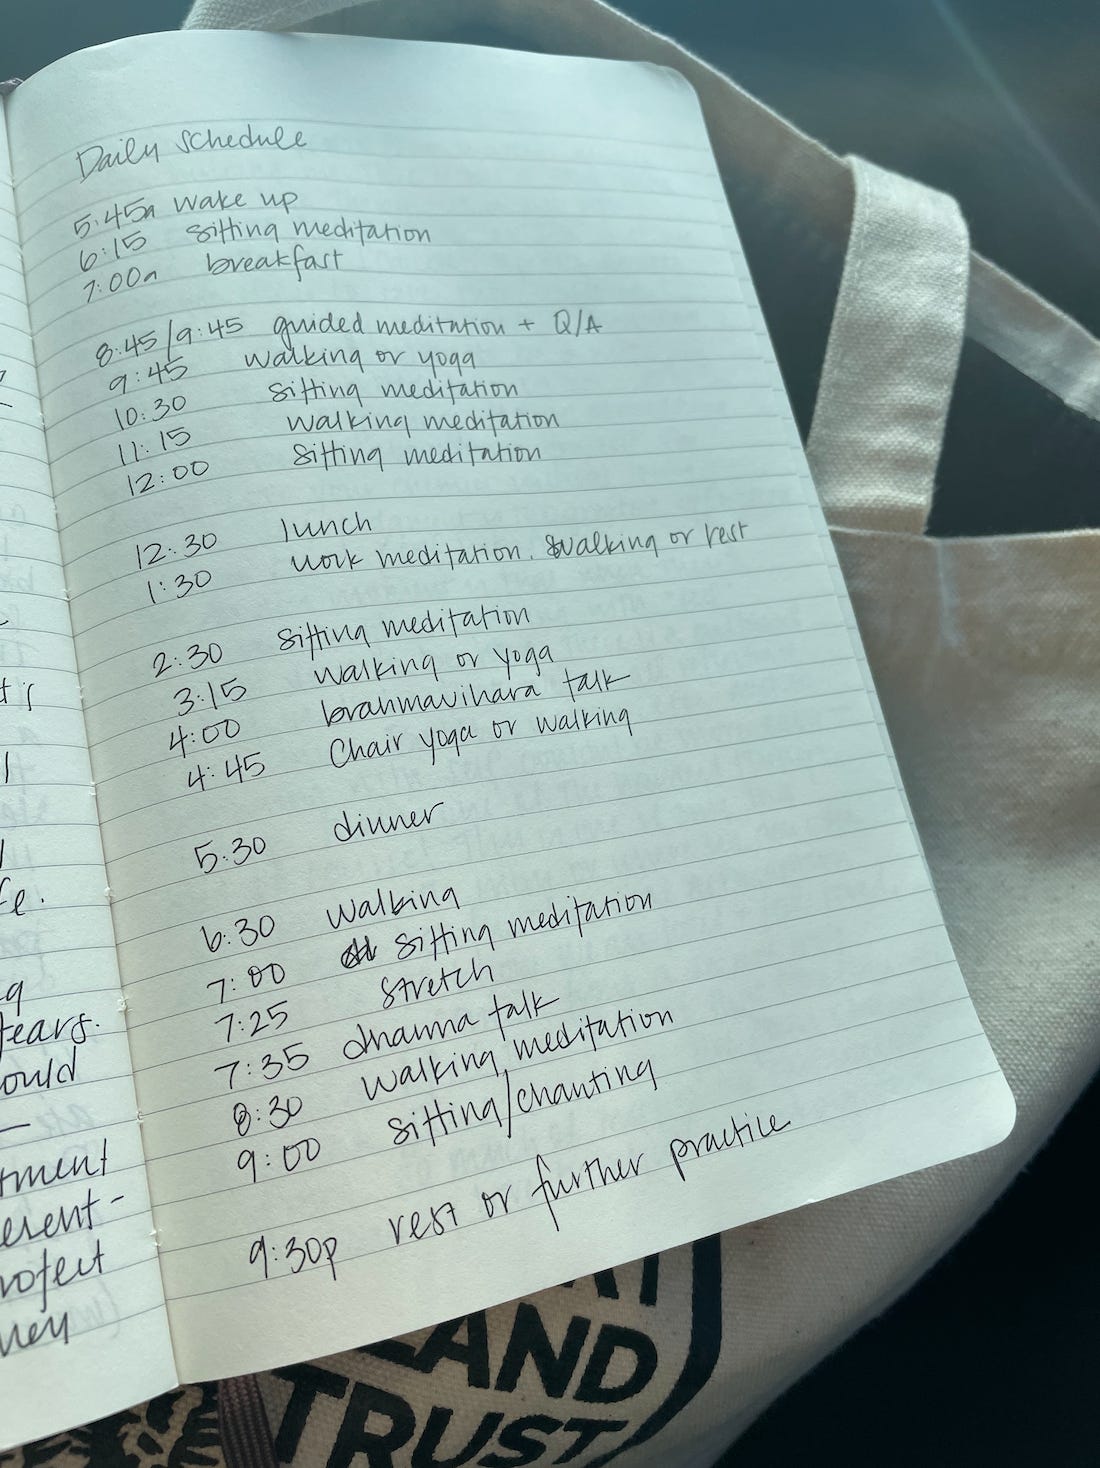 Daily Schedule
5:45a wake up
6:15 sitting meditation
7:00a breakfast
8:45/9:45 guided meditation + Q/A
9:45 walking or yoga
10:30 sitting meditation
11:15 walking meditation
12:00 sitting meditation
12:30 lunch
1:30 work meditation. walking or rest
2:30 sitting meditation
3:15 walking or yoga
4:00 brahmavihara talk
4:45 Chair yoga or walking
5:30 dinner
6:30 walking
7:00 sitting meditation
7:25 stretch
7:35 dhamma talk
8:30 walking meditation
9:00 sitting/chanting
9:30p rest or further practice
AND
TRUST